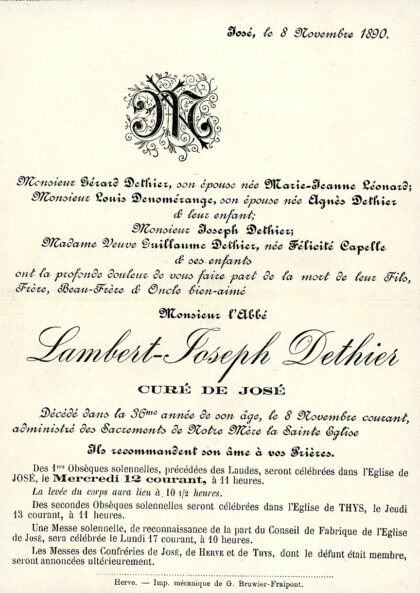 José, le 8 Novembre 1890.
M
Monsieur Gérard Dethier, son épouse née Marie-Jeanne Léonard;
Monsieur Louis Denomérange, son épouse née Agnès Dethier
& leur enfant;
Monsieur Joseph Dethier;
Madame Veuve Guillaume Dethier, née Félicité Capelle
& ses enfants
ont la profonde douleur de vous faire part de la mort de leur Fils,
Frère, Beau-Frère & Oncle bien-aimé
Monsieur l'Abbé
Lambert-Joseph Dethier
CURÉ DE JOSÉ
Décédé dans la 36me année de son âge, le 8 Novembre courant,
administré des Sacrements de Notre Mère la Sainte Eglise
Ils recommandent son âme à vos Prières.
Des 1res Obsèques solennelles, précédées des Laudes, seront célébrées dans l'Eglise de
JOSÉ, le Mercredi 12 courant, à 11 heures.
La levée du corps aura lieu à 10 1/2 heures.
Des secondes Obsèques solennelles seront célébrées dans l'Eglise de THYS, le Jeudi
13 courant, à 11 heures.
Une Messe solennelle, de reconnaissance de la part du Conseil de Fabrique de l'Eglise
de José, sera célébrée le Lundi 17 courant, à 10 heures.
Les Messes des Confréries de José, de Herve et de Thys, dont le défunt était membre,
seront annoncées ultérieurement.
Herve. — Imp. mécanique de G. Bruwier-Fraipont.